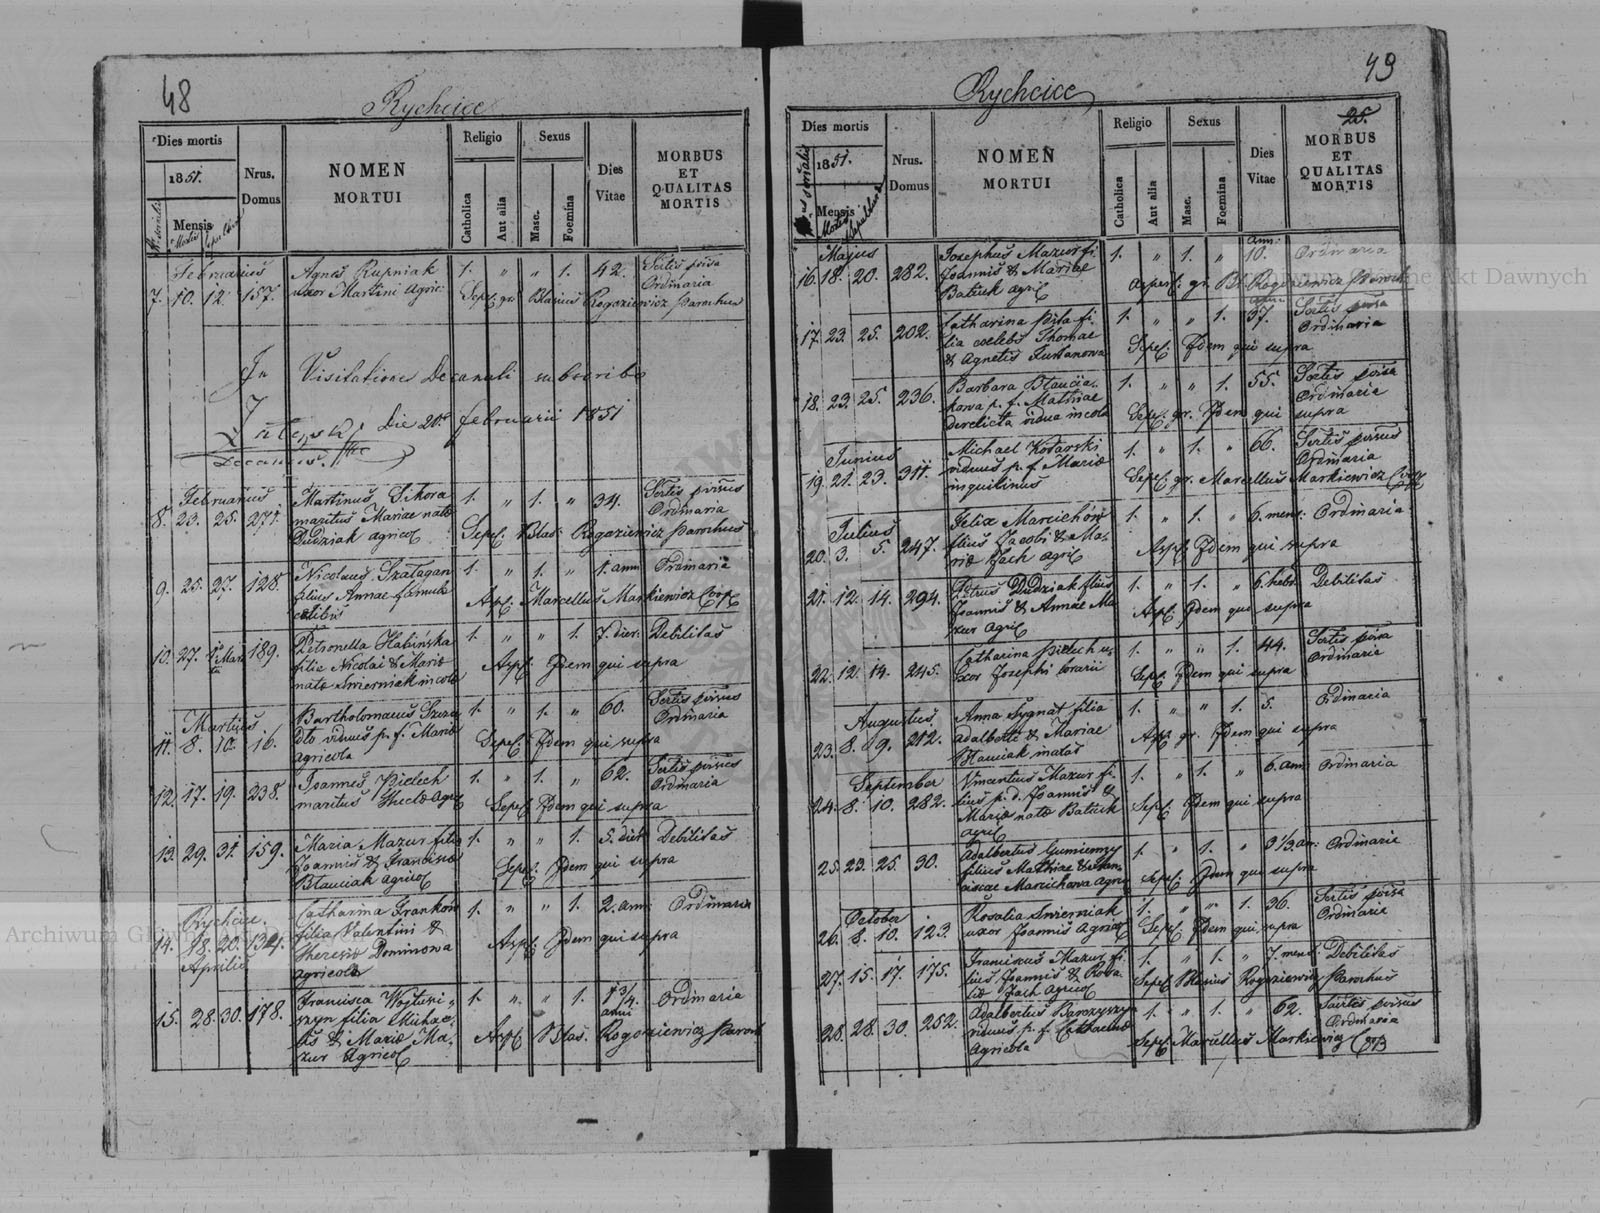 48
Rychcice
Dies mortis
1851.
Mensis
Mortis
Sepulturae
Nrus.
Domus
NOMEN
MORTUI
Religio
Catholica
Aut alia
Sexus
Masc.
Foemina
Dies
Vitae
MORBUS
ET
QUALITAS
MORTIS
Februarius
7. 10. 12. 157. Agnes Rupniak 1. " " 1. 42. Sortis poisa
uxor Martini agric. Ordinaria
Sepel. gr. Blasius Rogoziewicz Parochus
In Visitatione Decanali subscribo
die 20. februarii 1851
Decanus.
Februarius
8. 23. 25. 271. Martinus Sikora 1. " 1. " 34.
maritus Mariae nata Ordinaria
Dudziak agricol
Sepel. Blas. Rogoziewicz Parochus
9. 25. 27. 128. Nicolaus Szałagan 1. " 1. " 1. ann Ordinaria
filius Annae famula
Asp. Marcellus Markiewicz Coop
10. 27. 189. Petronella Habińska 1. " " 1. 7. dier. Debilitas
filia Nicolai & Maria
nata Swierniak incola
Asp. Idem qui supra
Martius
11. 8. 10. 16. Bartholomaeus 1. " 1. " 60.
viduus p. f. Maria Ordinaria
agricola
Sepel. Idem qui supra
12. 17. 19. 238. Joannes Pielech 1. " 1. " 62.
maritus Thecla agric Ordinaria
Sepel. Idem qui supra
13. 29. 31. 159. Maria Mazur filia 1. " " 1. 5. dier Debilitas
Joannis & Francisca
Błauciak agricol
Sepel. Idem qui supra
Rychcice.
14. 18. 20. 134. Catharina Frankow 1. " " 1. 2. ann. Ordinaria
Aprilis
filia Valentini &
Theresia Dominowa
agricola
Asp. Idem qui supra
15. 28. 30. 178. Francisca 1. " " 1. 1 3/4 Ordinaria
anni
filia Michae-
lis & Maria Ma-
zur agricol
Asp. Blas. Rogoziewicz Paroch
49
Rychcice
25.
Dies mortis
1851.
Mensis
Mortis
Sepulturae
Nrus.
Domus
NOMEN
MORTUI
Religio
Catholica
Aut alia
Sexus
Masc.
Foemina
Dies
Vitae
MORBUS
ET
QUALITAS
MORTIS
Majus
16. 18. 20. 282. Josephus Mazur fi. 1. " 1. " ann. 10. Ordinaria
Joannis & Mariae
Batiuk agric
Aspers. gr. Bl. Rogoziewicz Paroch
17. 23. 25. 202. Catharina Piła fi- 1. " " 1. 37. Sortis poisa
lia coelebs Thomae Ordinaria
& Agnetis
Sepel. Idem qui supra
18. 23. 25. 236. Barbara 1. " " 1. 55. Sortis poisa
p. f. Mathiae Ordinaria
derelicta vidua incola
Sepel. gr. Idem qui supra
Junius
19. 21. 23. 311. Michael 1. " 1. " 66.
viduus p. f. Maria Ordinaria
inquilinus
Sepel. gr. Marcellus Markiewicz Coop
Julius
20. 3. 5. 247. Felix Marcichow 1. " 1. " 6. mens. Ordinaria
filius Jacobi & Ma-
ria Jach agric
Asp. Idem qui supra
21. 12. 14. 294. Petrus Dudziak filius 1. " 1. " 6. hebd. Debilitas
Joannis & Annae Ma
zur agric
Asp. Idem qui supra
22. 12. 14. 245. Catharina Pielech u- 1. " " 1. 44. Sortis poisa
xor Josephi Ordinaria
Sepel. Idem qui supra
Augustus
23. 8. 9. 212. Anna Sygnat filia 1. " " 1. 5. Ordinaria
Adalberti & Mariae
Błauciak
Asp. gr. Idem qui supra
September
24. 8. 10. 282. Vincentius Mazur fi- 1. " 1. " 6. ann. Ordinaria
lius p. d. Joannis &
Maria nata Batiuk
agric
Sepel. Idem qui supra
25. 23. 25. 30. Adalbertus Gumienny 1. " 1. " Ordinaria
filius Mathiae & Fran-
ciscae Marcichowa agric
Sepel. Idem qui supra
October
26. 8. 10. 123. Rosalia Swierniak 1. " " 1. 36. Sortis poisa
uxor Joannis agricol Ordinaria
Sepel. Idem qui supra
27. 15. 17. 175. Franciscus Mazur fi- 1. " 1. " 7. mens. Debilitas
lius Joannis & Rosa-
lia Jach agricol
Sepel. Blasius Rogoziewicz Parochus
28. 28. 30. 252. Adalbertus 1. " 1. " 62.
viduus p. f. Catharina Ordinaria
agricola
Sepel. Marcellus Markiewicz Coop
Archiwum Główne Akt Dawnych
Archiwum Główne Akt Dawnych